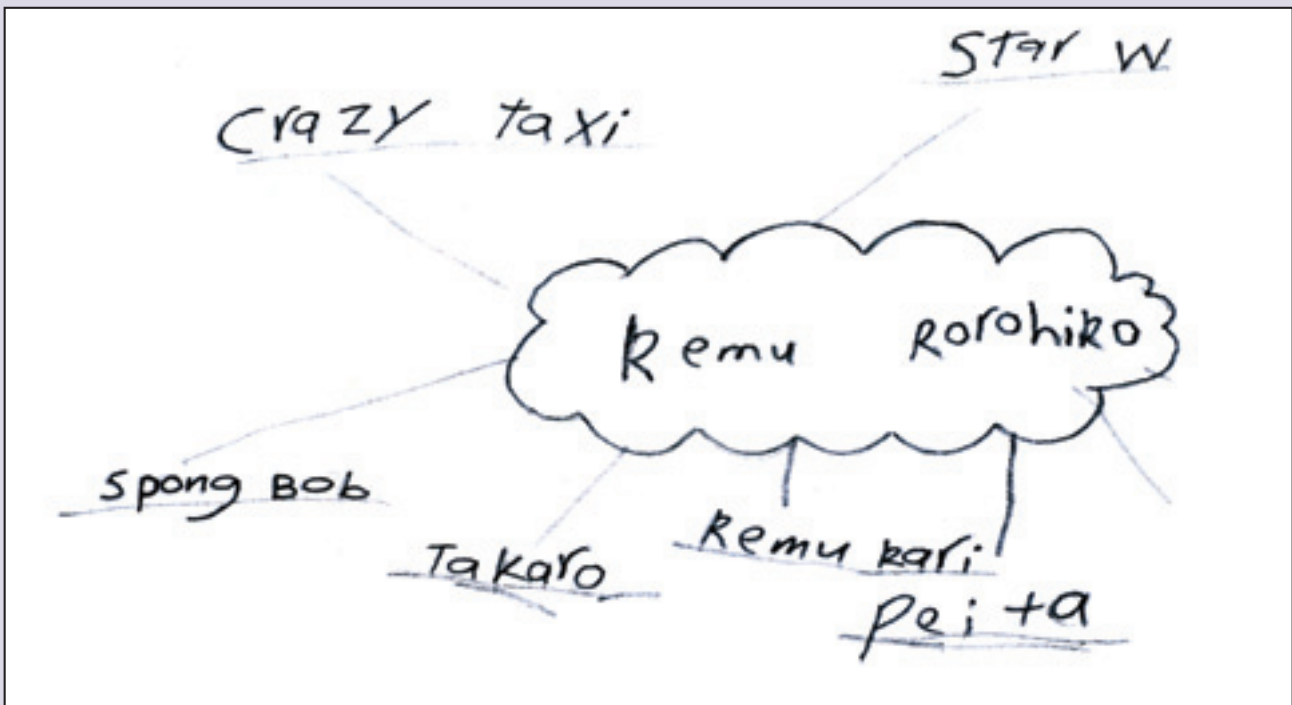 Star W
Crazy Taxi
Kemu Rorohiko
Spong Bob
Takaro
Kemu kari
pei ta